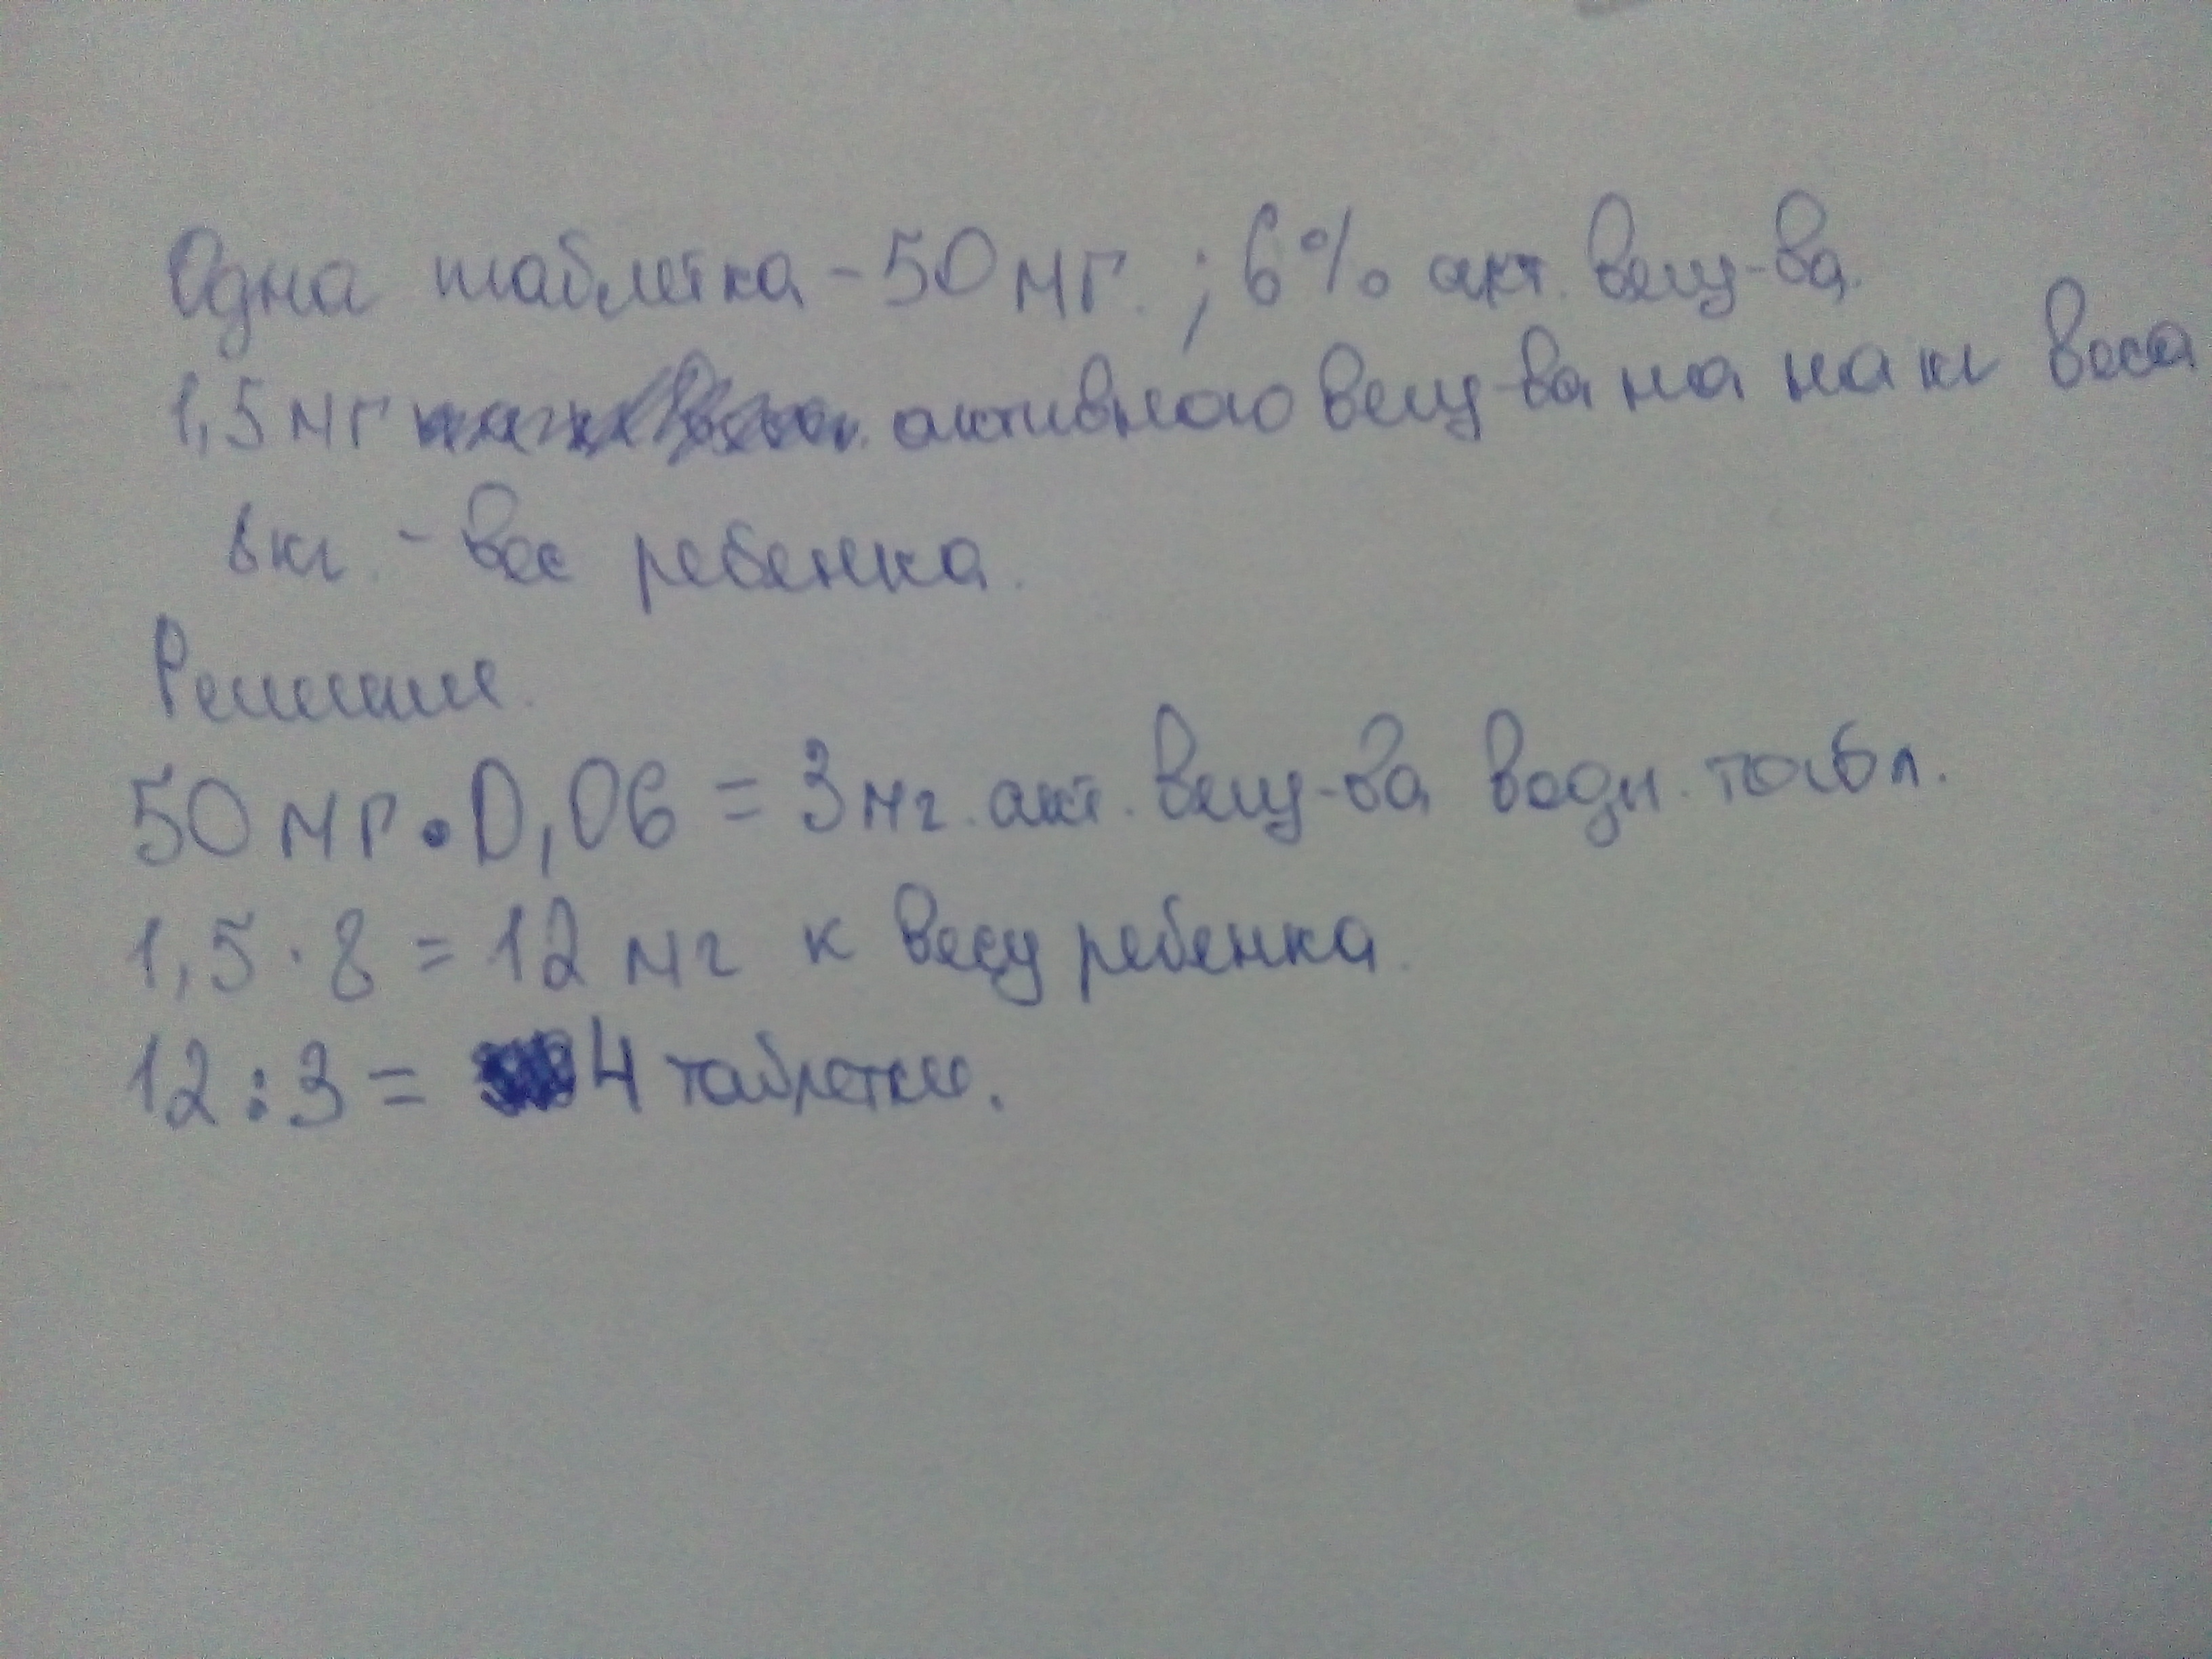 Одна таблетка - 50 мг. ; 6% акт. вещ-ва.
1,5 мг активного вещ-ва на на кг веса
8 кг. - вес ребенка.
Решение.
50 мг • 0,06 = 3 мг. акт. вещ-ва в одн. табл.
1,5 · 8 = 12 мг к весу ребенка.
12 : 3 = 4 таблетки.